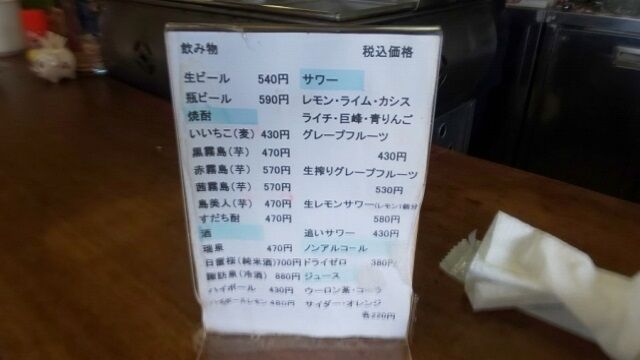 飲み物 税込価格
生ビール 540円
瓶ビール 590円
焼酎
いいちこ(麦) 430円
黒霧島(芋) 470円
赤霧島(芋) 570円
茜霧島(芋) 570円
島美人(芋) 470円
すだち酎 470円
酒
瑞泉 470円
日置桜(純米酒)700円
諏訪泉(冷酒) 860円
ハイボール 430円
ハイボールレモン 480円
サワー
レモン・ライム・カシス
ライチ・巨峰・青りんご
グレープフルーツ
430円
生搾りグレープフルーツ
530円
生レモンサワー(レモン1個分)
580円
追いサワー 430円
ノンアルコール
ドライゼロ 380円
ジュース
ウーロン茶・コーラ
サイダー・オレンジ
各220円